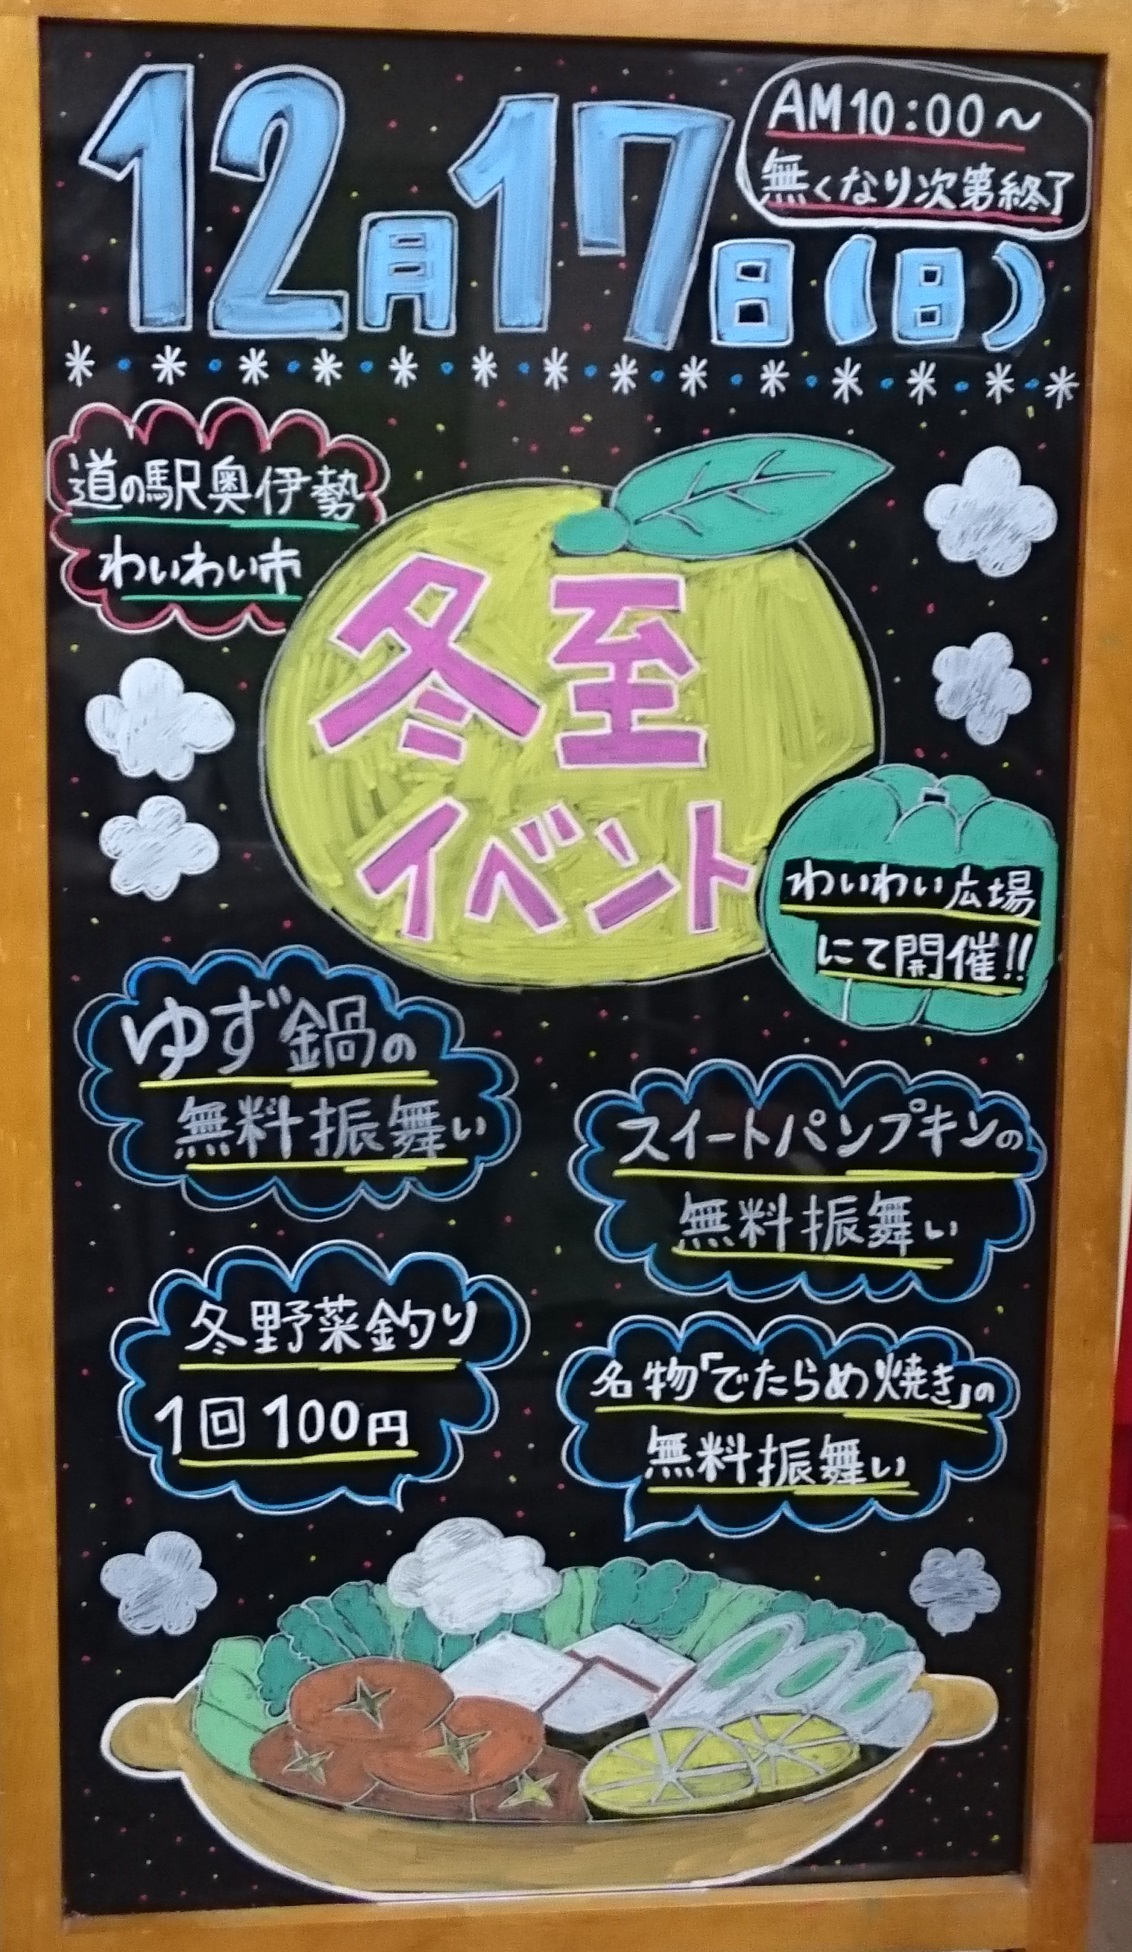 12月17日(日)
AM10:00～
無くなり次第終了
道の駅奥伊勢
わいわい市
冬至
イベント
わいわい広場
にて開催!!
ゆず鍋の
無料振舞い
スイートパンプキンの
無料振舞い
冬野菜釣り
1回100円
名物「でたらめ焼き」の
無料振舞い